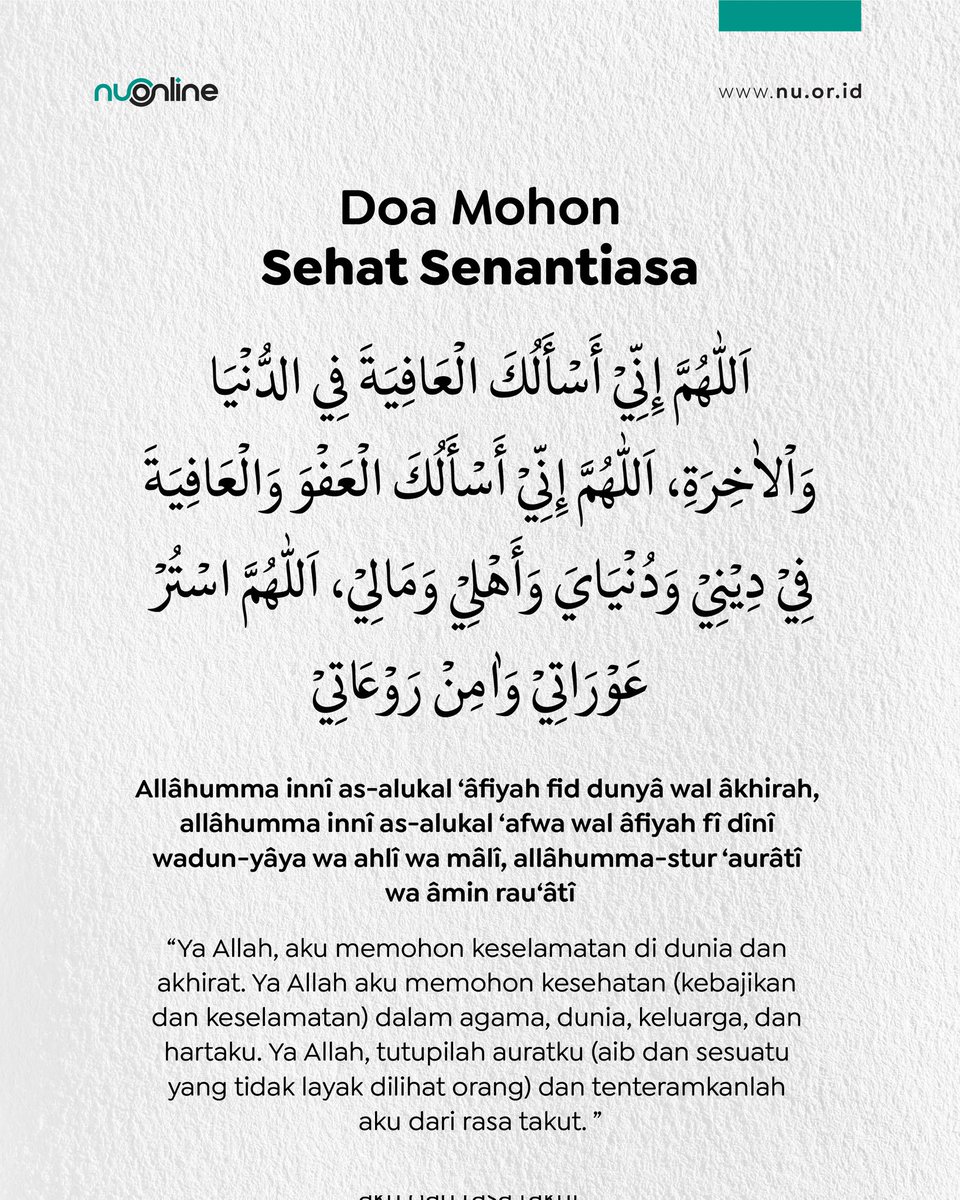 nuonline
www.nu.or.id
Doa Mohon
Sehat Senantiasa
اَللّٰهُمَّ إِنِّيْ أَسْأَلُكَ الْعَافِيَةَ فِي الدُّنْيَا
وَاْلاٰخِرَةِ، اَللّٰهُمَّ إِنِّيْ أَسْأَلُكَ الْعَفْوَ وَالْعَافِيَةَ
فِيْ دِيْنِيْ وَدُنْيَايَ وَأَهْلِيْ وَمَالِيْ، اَللّٰهُمَّ اسْتُرْ
عَوْرَاتِيْ وَاٰمِنْ رَوْعَاتِيْ
Allâhumma innî as-alukal ‘âfiyah fid dunyâ wal âkhirah,
allâhumma innî as-alukal ‘afwa wal âfiyah fî dînî
wadun-yâya wa ahlî wa mâlî, allâhumma-stur ‘aurâtî
wa âmin rau‘âtî
“Ya Allah, aku memohon keselamatan di dunia dan
akhirat. Ya Allah aku memohon kesehatan (kebajikan
dan keselamatan) dalam agama, dunia, keluarga, dan
hartaku. Ya Allah, tutupilah auratku (aib dan sesuatu
yang tidak layak dilihat orang) dan tenteramkanlah
aku dari rasa takut. ”